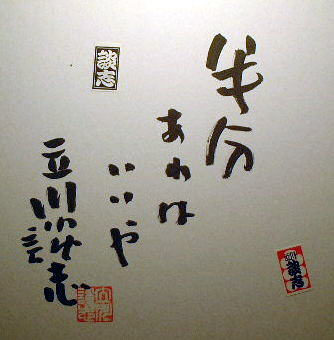 半分
あれば
いいや
立川談志
談志
談志